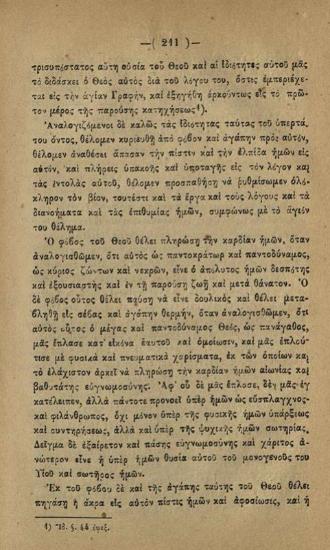 —( 211 )—
τρισυπόστατος αὕτη οὐσία τοῦ Θεοῦ καὶ αἱ ἰδιότητες αὐτοῦ μᾶς
τὸ διδάσκει ὁ Θεὸς αὐτὸς διὰ τοῦ λόγου του, ὅστις ἐμπεριέχε-
ται εἰς τὴν ἁγίαν Γραφήν, καὶ ἐξηγήθη ἀρκούντως εἰς τὸ πρῶ-
τον μέρος τῆς παρούσης κατηχήσεως⁴).
Ἀναλογιζόμενοι δὲ καλῶς τὰς ἰδιότητας ταύτας τοῦ ὑπερτά-
του ὄντος, θέλομεν κυριευθῆ ἀπὸ φόβον καὶ ἀγάπην πρὸς αὐτόν,
θέλομεν ἀναθέσει ἅπασαν τὴν πίστιν καὶ τὴν ἐλπίδα ἡμῶν εἰς
αὐτόν, καὶ πλήρεις ὑπακοῆς καὶ ὑποταγῆς εἰς τὸν λόγον καὶ
τὰς ἐντολὰς αὐτοῦ, θέλομεν προσπαθήσῃ νὰ ῥυθμίσωμεν ὁλό-
κληρον τὸν βίον, τουτέστι καὶ τὰ ἔργα καὶ τοὺς λόγους καὶ τὰ
διανοήματα καὶ τὰς ἐπιθυμίας ἡμῶν, συμφώνως μὲ τὸ ἅγιόν
του θέλημα.
Ὁ φόβος τοῦ Θεοῦ θέλει πληρώσῃ τὴν καρδίαν ἡμῶν, ὅταν
ἀναλογισθῶμεν, ὅτι αὐτὸς ὡς παντοκράτωρ καὶ παντοδύναμος,
ὡς κύριος ζώντων καὶ νεκρῶν, εἶνε ὁ ἀπόλυτος ἡμῶν δεσπότης
καὶ ἐξουσιαστὴς καὶ ἐν τῇ παρούσῃ ζωῇ καὶ μετὰ θάνατον. Ὁ
δὲ φόβος οὗτος θέλει παύσῃ νὰ εἶνε δουλικὸς καὶ θέλει μετα-
βληθῇ εἰς σέβας καὶ ἀγάπην θερμήν, ὅταν ἀναλογισθῶμεν, ὅτι
αὐτὸς οὗτος ὁ μέγας καὶ παντοδύναμος Θεός, ὡς πανάγαθος,
μᾶς ἔπλασε κατ' εἰκόνα ἑαυτοῦ καὶ ὁμοίωσιν, καὶ μᾶς ἐπλού-
τισε μὲ φυσικὰ καὶ πνευματικὰ χαρίσματα, ἐκ τῶν ὁποίων καὶ
τὸ ἐλάχιστον ἀρκεῖ νὰ πληρώσῃ τὴν καρδίαν ἡμῶν αἰωνίας καὶ
βαθυτάτης εὐγνωμοσύνης. Ἀφ' οὗ δὲ μᾶς ἔπλασε, δὲν μᾶς ἐγ-
κατέλειπεν, ἀλλὰ πάντοτε προνοεῖ ὑπὲρ ἡμῶν ὡς εὐσπλαγχνος-
καὶ φιλάνθρωπος, ὄχι μόνον ὑπὲρ τῆς φυσικῆς ἡμῶν ὑπάρξεως
καὶ συντηρήσεως, ἀλλὰ καὶ ὑπὲρ τῆς ψυχικῆς ἡμῶν σωτηρίας.
Δεῖγμα δὲ ἐξαίρετον καὶ πάσης εὐγνωμοσύνης καὶ χάριτος ἀ-
νώτερον εἶνε ἡ ὑπὲρ ἡμῶν θυσία αὐτοῦ τοῦ μονογενοῦς του
Υἱοῦ καὶ σωτῆρος ἡμῶν.
Ἐκ τοῦ φόβου δὲ καὶ τῆς ἀγάπης ταύτης τοῦ Θεοῦ θέλει
πηγάσῃ ἡ ἄκρα εἰς αὐτὸν πίστις ἡμῶν καὶ ἀφοσίωσις, καὶ ἡ
⁴) Ἴδ. §. 44 ἐφεξ.